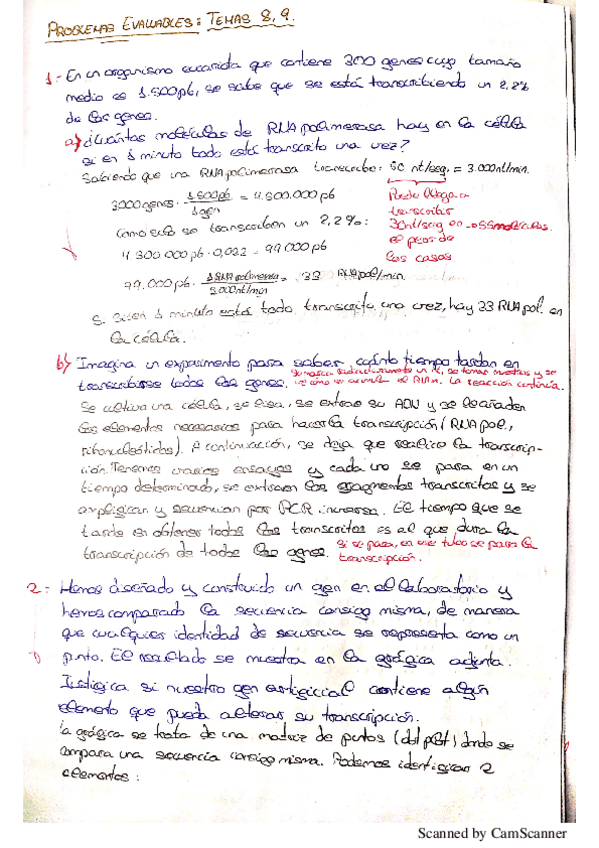 PROBLEMAS EVALUABLES: TEMAS 8, 9.
1.- En un organismo eucariota que contiene 300 genes cuyo tamaño
medio es 1.500pb, se sabe que se está transcribiendo un 2,2%
de los genes.
a) ¿Cuántas moléculas de RNA polimerasa hay en la célula
si en 1 minuto todo está transcrito una vez?
Sabiendo que una RNA polimerasa transcribe: 50 nt/seg. = 3.000nt/min.
3000genes · 1500pb / 1gen = 4.500.000pb
Puede llegar a
transcribir
30nt/seg
55 moléculas.
el peor de
los casos
Como sólo se transcriben un 2,2%:
4 500 000pb · 0,022 = 99 000pb
99.000pb · 1 RNA polimerasa / 3.000nt/min = 33 RNApol/min.
S. Si en 1 minuto está todo transcrito una vez, hay 33 RNApol. en
la célula.
b) Imagina un experimento para saber cuánto tiempo tardan en
se toman muestras y se
transcribirse todos los genes. ve cómo se acumula el RNAm. La reacción continúa.
Se cultiva una célula, se lisa, se extrae su ADN y se le añaden
los elementos necesarios para hacer la transcripción (RNA pol.,
ribonucleótidos). A continuación, se deja que realice la transcrip-
ción. Tenemos varios ensayos y cada uno se para en un
tiempo determinado, se extraen los fragmentos transcritos y se
amplifican y secuencian por PCR inversa. El tiempo que se
tarde en obtener todos los transcritos es el que dura la
transcripción de todos los genes. Si se para, en ese tubo se para la
transcripción.
2.- Hemos diseñado y construido un gen en el laboratorio y
hemos comparado la secuencia consigo misma, de manera
que cualquier identidad de secuencia se representa como un
punto. El resultado se muestra en la gráfica adjunta.
Justifica si nuestro gen artificial contiene algún
elemento que pueda alterar su transcripción.
La gráfica se trata de una matriz de puntos (dot plot) donde se
compara una secuencia consigo misma. Podemos identificar 2
elementos:
Scanned by CamScanner